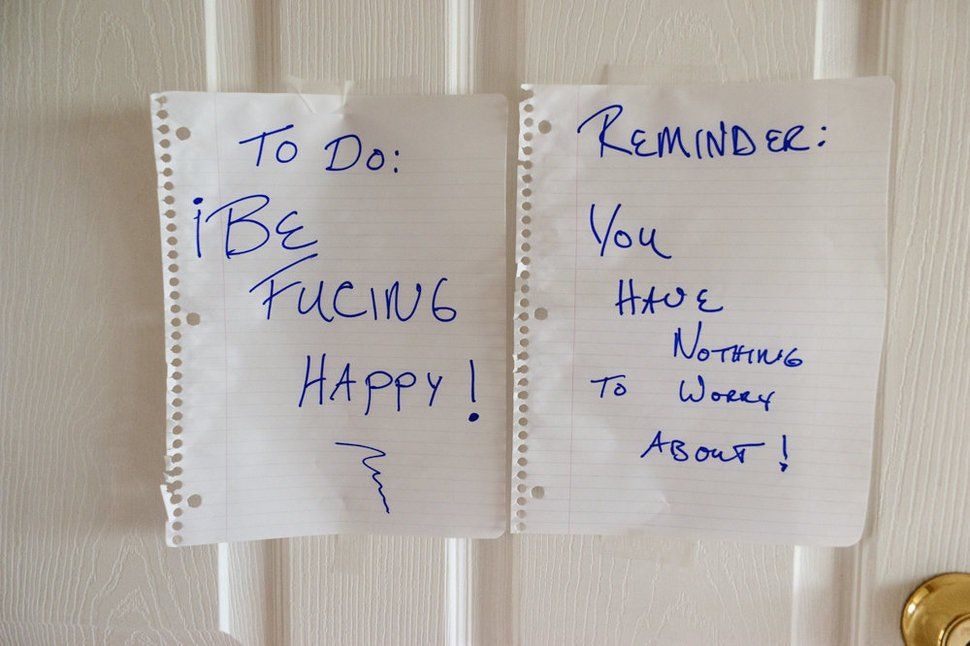 TO DO:
¡BE
FUCING
HAPPY!
REMINDER:
YOU
HAVE
NOTHING
TO WORRY
ABOUT!